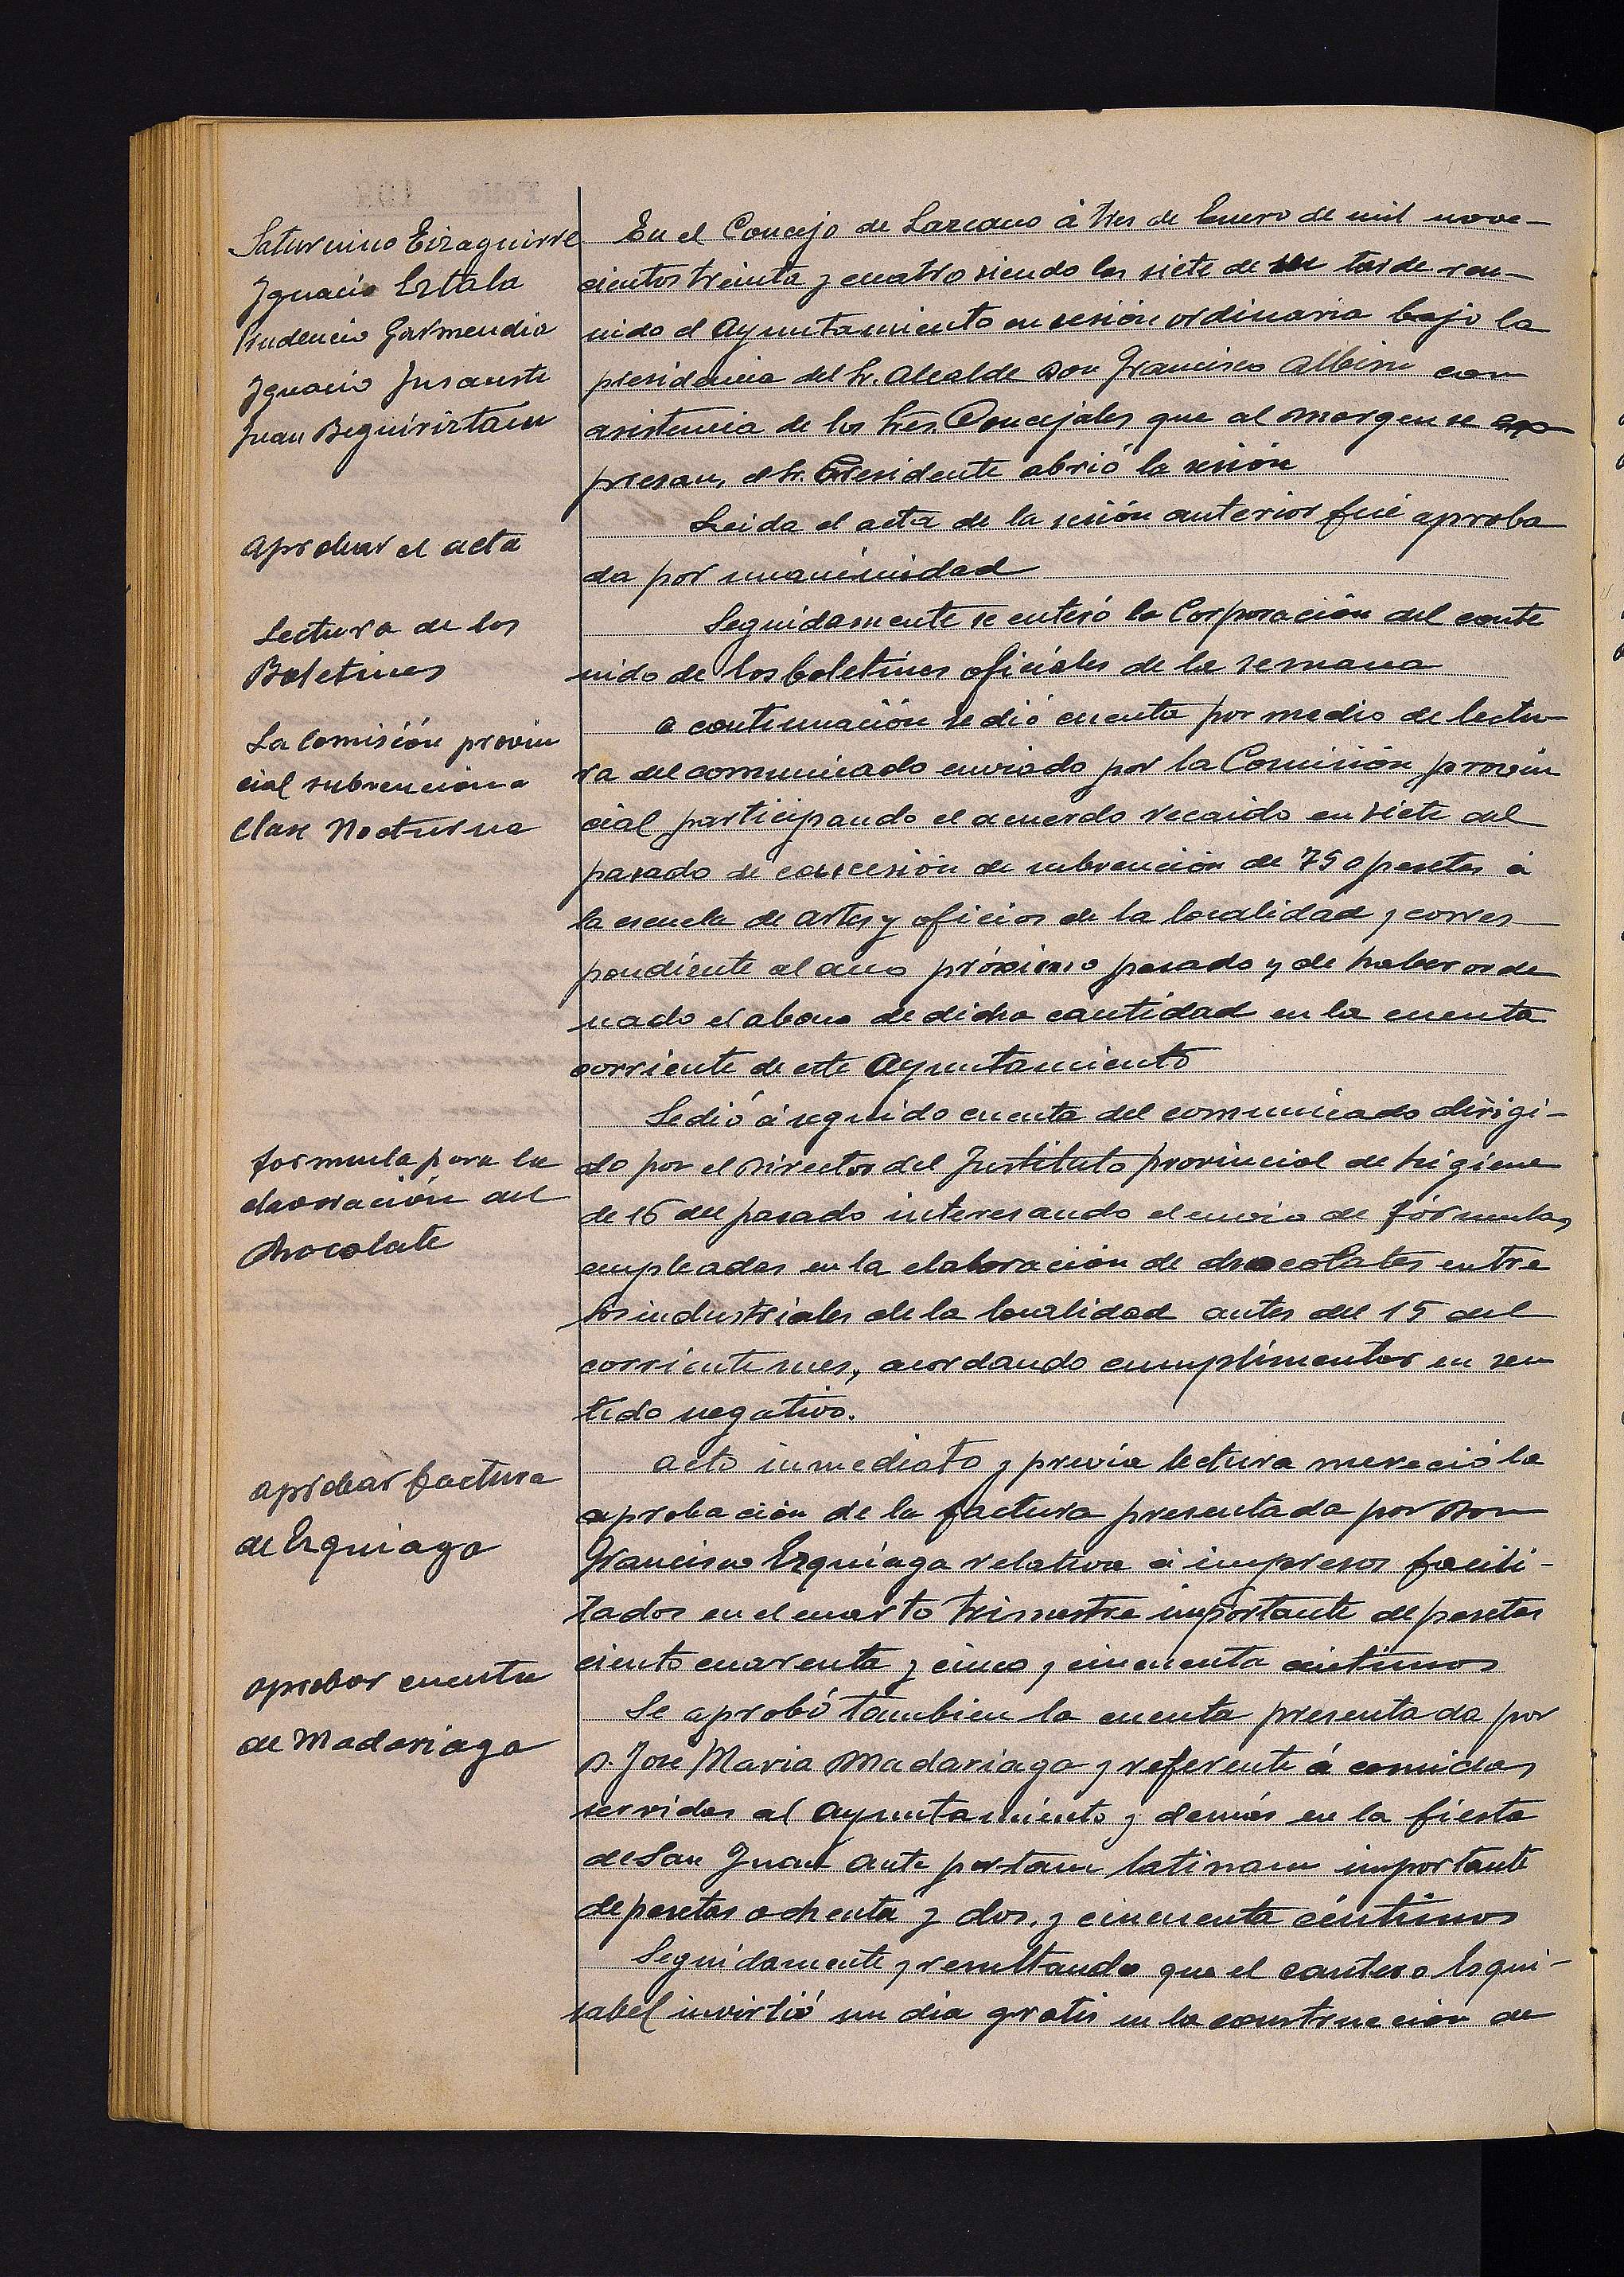 Saturnino Eizaguirre
Ignacio Eztala
Prudencio Garmendia
Ignacio Insausti
Juan Beguiristain
En el Concejo de Lazcano á tres de Enero de mil nove-
cientos treinta y cuatro siendo las siete de su tarde reu-
nido el Ayuntamiento en sesión ordinaria bajo la
presidencia del Sr. Alcalde Don Francisco Albisu con
asistencia de los Sres. Concejales que al margen se ex
presan, el Sr. Presidente abrió la sesión
Aprobar el acta
Leida el acta de la sesión anterior fué aproba
da por unanimidad
Lectura de los
Boletines
Seguidamente se enteró la Corporación del conte
nido de los boletines oficiales de la semana
La Comisión provin
cial subvenciona
Clase Nocturna
a continuación se dió cuenta por medio de lectu-
ra del comunicado enviado por la Comisión provin
cial participando el acuerdo recaido en siete del
pasado de concesión de subvención de 750 pesetas á
la escuela de artes y oficios de la localidad y corres
pondiente al año próximo pasado y de haber orde
nado el abono de dicha cantidad en la cuenta
corriente de este Ayuntamiento
formula para la
elaboración del
chocolate
Se dió á seguido cuenta del comunicado dirigi-
do por el Director del Instituto provincial de higiene
de 16 del pasado interesando el envio de fórmulas
empleadas en la elaboración de chocolates entre
los industriales de la localidad antes del 15 del
corriente mes, acordando cumplimentar en sen
tido negativo.
aprobar factura
de Ezquiaga
acto inmediato y previa lectura mereció la
aprobación de la factura presentada por Don
Francisco Ezquiaga relativa á impresos facili-
tados en el cuarto trimestre importante de pesetas
ciento cuarenta y cinco y cincuenta centimos
aprobar cuenta
de Madariaga
Se aprobó tambien la cuenta presentada por
D. Jose Maria Madariaga y referente á comidas
servidas al Ayuntamiento y demás en la fiesta
de San Juan ante portam latinam importante
de pesetas ochenta y dos, y cincuenta céntimos
Seguidamente y resultando que el cantero Esqui-
sabel invirtió un dia gratis en la construccion de